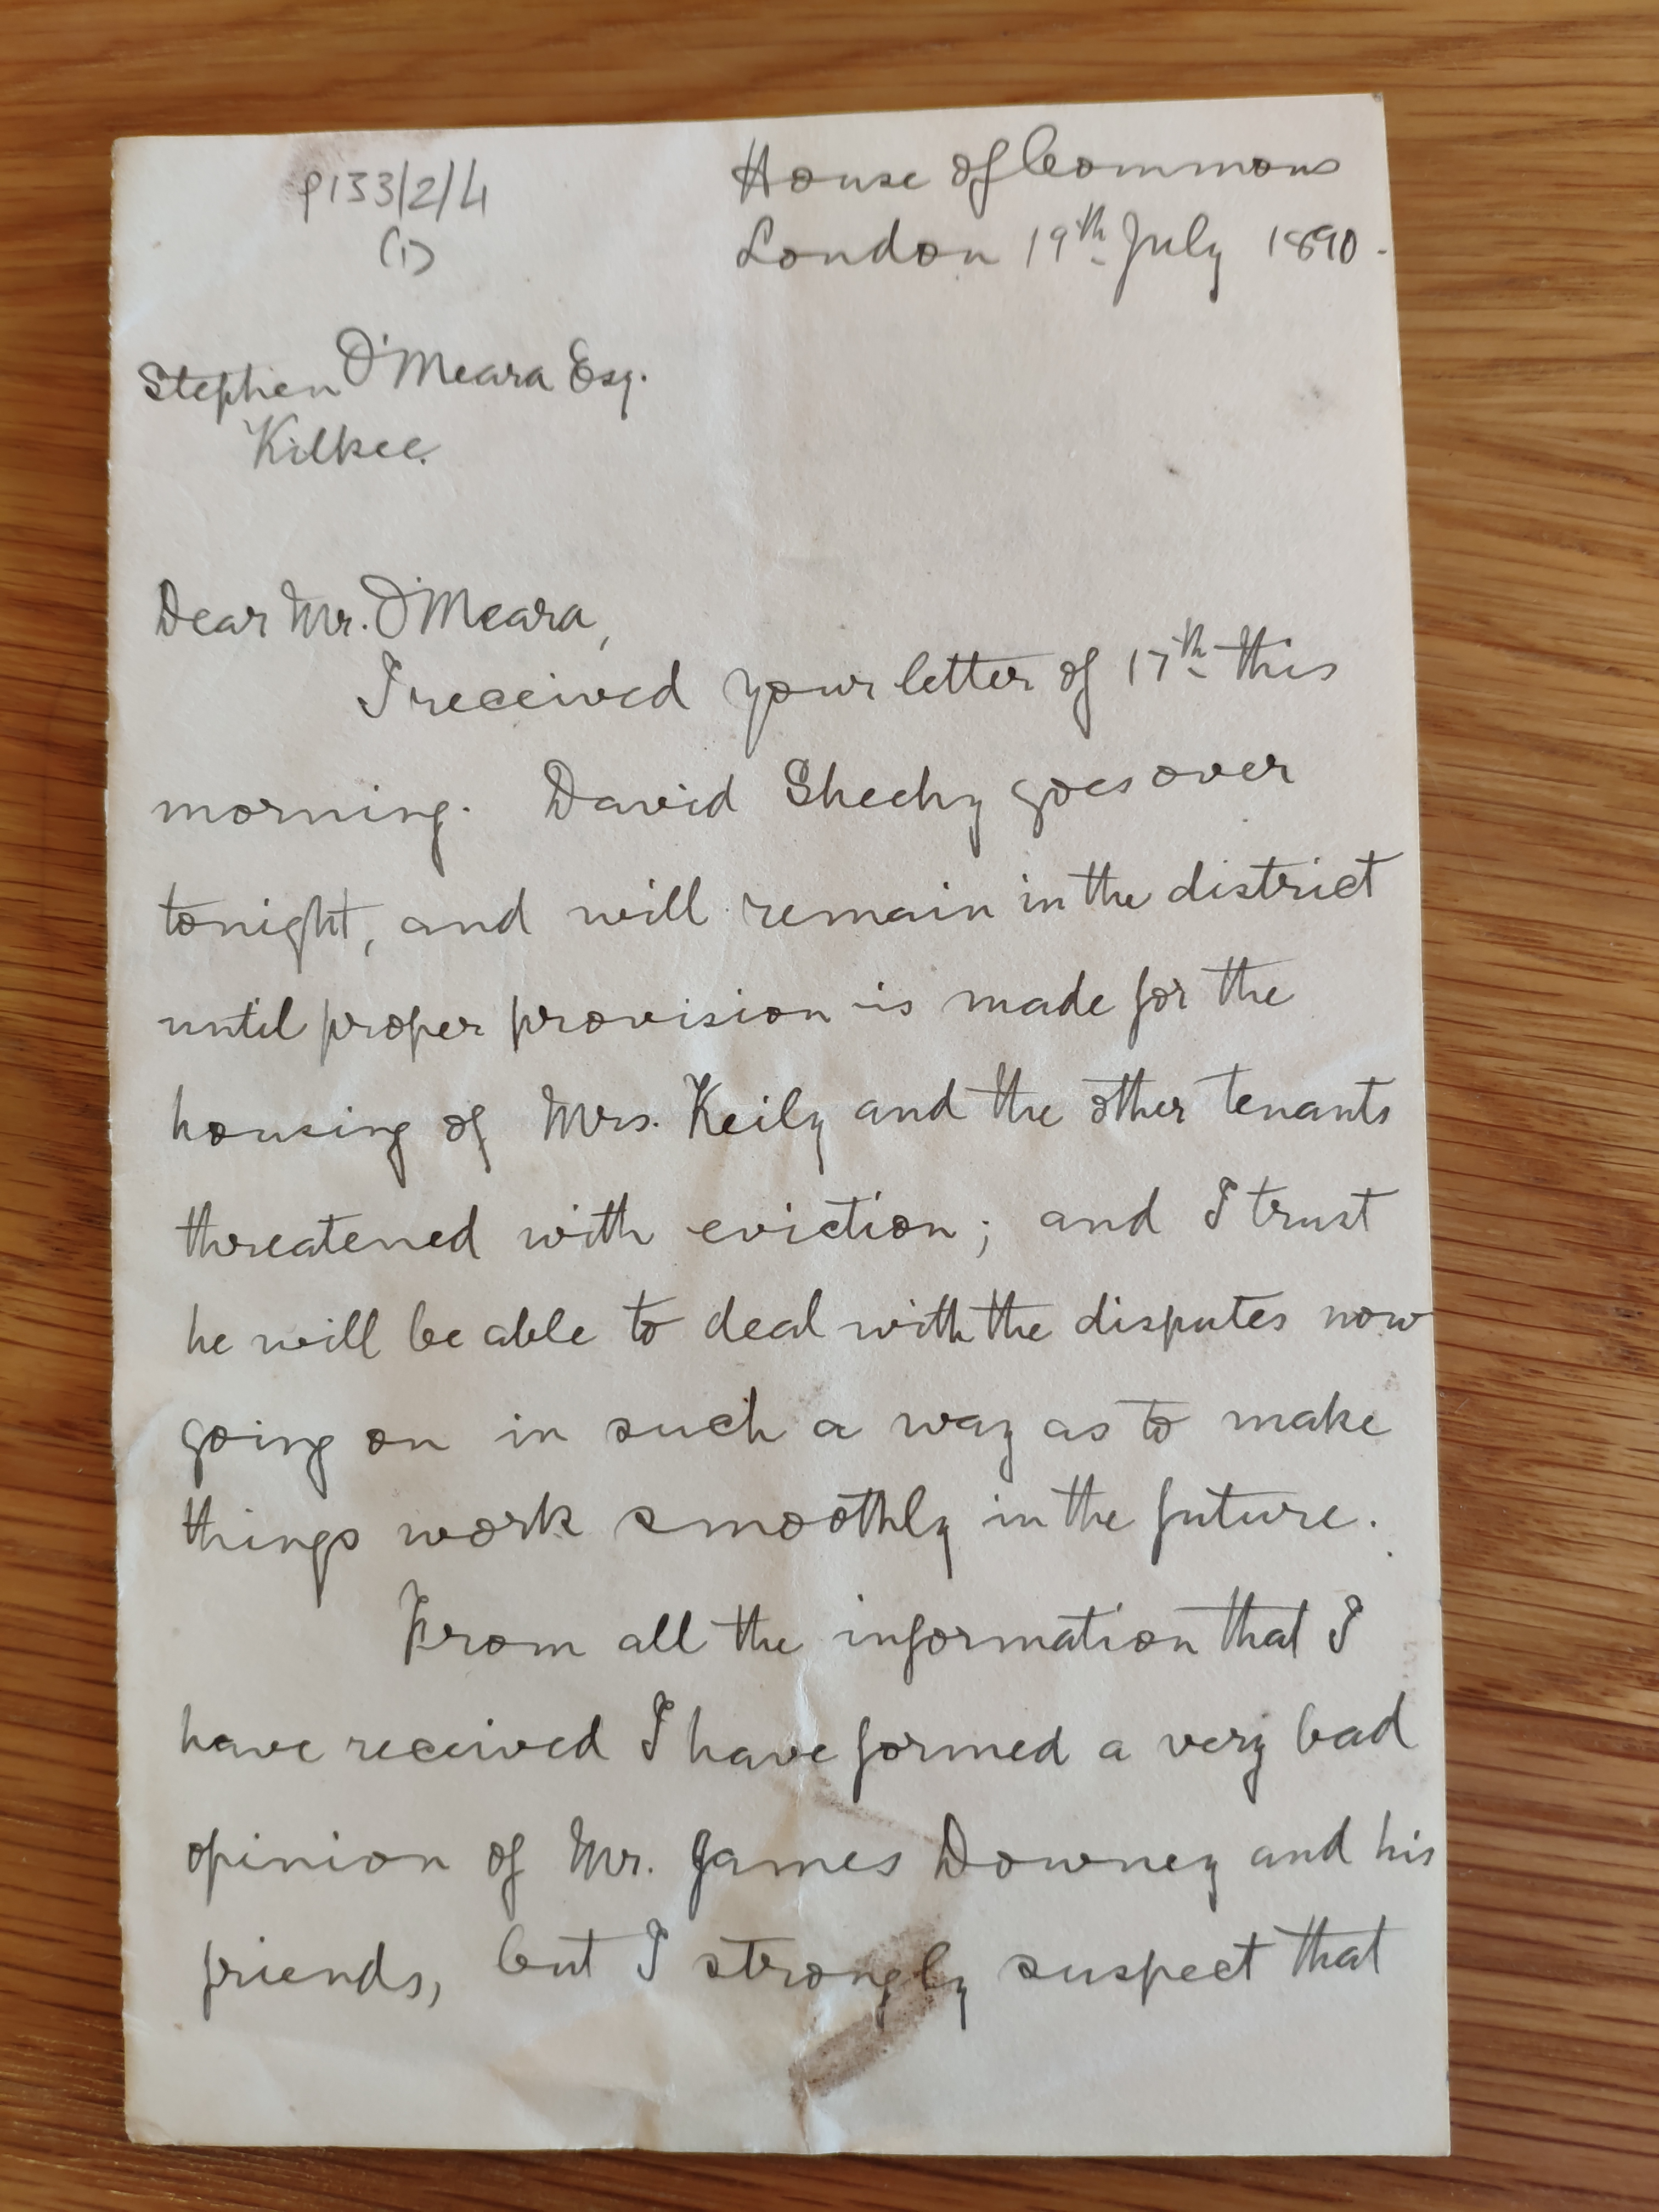 P133/2/4
(1)
House of Commons
London 19th July 1890.
Stephen O'Meara Esq.
Kilkee.
Dear Mr. O'Meara,
I received your letter of 17th this
morning. David Sheehy goes over
tonight, and will remain in the district
until proper provision is made for the
housing of Mrs. Keily and the other tenants
threatened with eviction; and I trust
he will be able to deal with the disputes now
going on in such a way as to make
things work smoothly in the future.
From all the information that I
have received I have formed a very bad
opinion of Mr. James Downey and his
friends, but I strongly suspect that